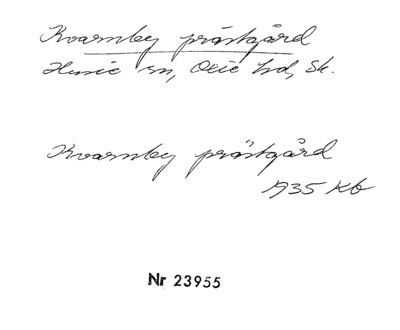 Kvarnby prästgård
Husie sn, Oxie hd, Sk.
Kvarnby prästgård
1935 Kb
Nr 23955